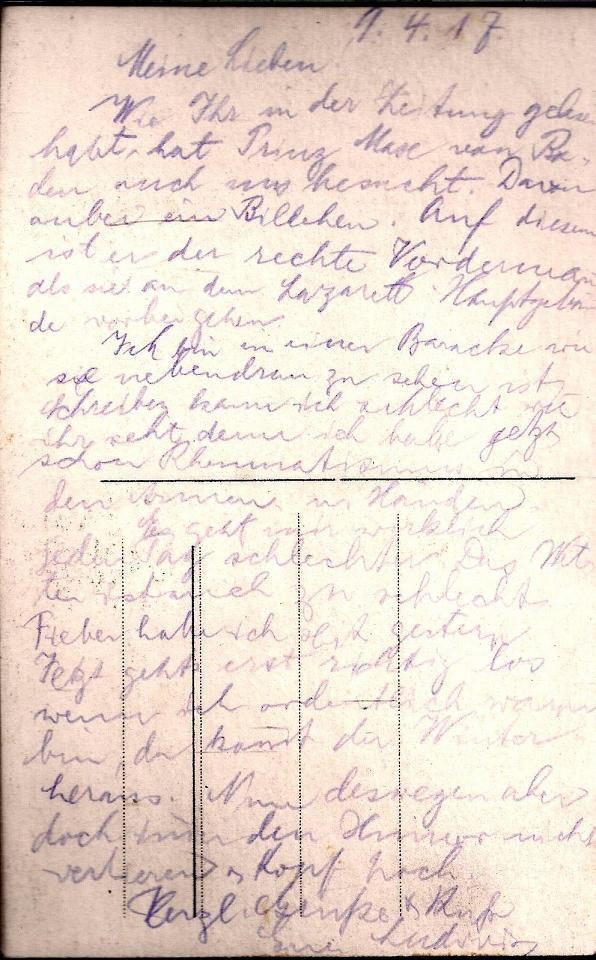 9. 4. 17.
Meine Lieben!
Wie Ihr in der Zeitung gele
habt, hat Prinz Max von Ba-
den auch uns besucht. Davon
ein Bildchen. Auf diesem
ist er der rechte Vorderman
als sie an dem Lazarett Hauptgebäu
de vorbei gehen.
Ich bin in einer Baracke wie
sie nebendran zu sehen ist
schreiben kann ich schlecht wie
ihr seht, denn ich habe jetzt
schon Rheumatismus in
den Armen u. Händen.
Es geht mir wirklich
jeden Tag schlechter. Das Wet
ter ist auch zu schlecht
Fieber habe ich seit gestern
Jetzt geht's erst richtig los
wenn ich ordentlich warm
bin, da kommt der Winter
heraus. Nun deswegen aber
doch den Humor nicht
verlieren, Kopf hoch.
Herzl. Grüße & Kuß
Euer Ludwig